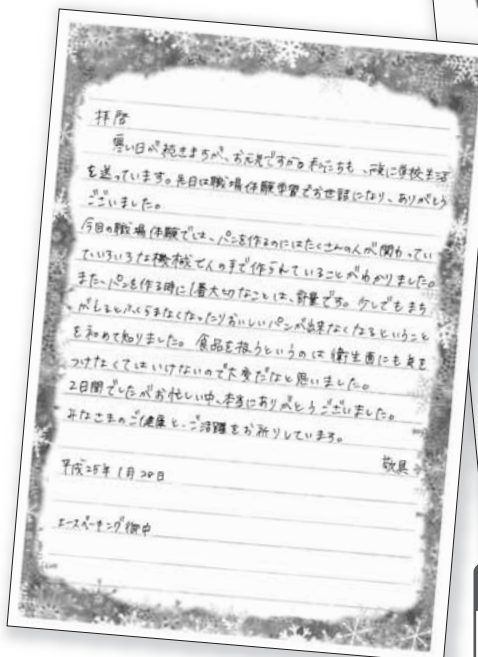 拝啓
寒い日が続きますが、お元気ですか。私たちも、元気に学校生活
を送っています。先日は職場体験学習でお世話になり、ありがとう
ございました。
今回の職場体験では、パンを作るのにはたくさんの人が関わってい
ていろいろな機械で人の手で作られていることがわかりました。
また、パンを作る時に1番大切なことは、計量です。少しでもまち
がえるとふくらまなくなったりおいしいパンが出来なくなるということ
を初めて知りました。食品を扱うというのは衛生面にも気を
つけなくてはいけないので大変だなと思いました。
2日間でしたがお忙しい中、本当にありがとうございました。
みなさまのご健康と、ご活躍をお祈りしています。
敬具
平成25年1月28日
エースベーキング御中